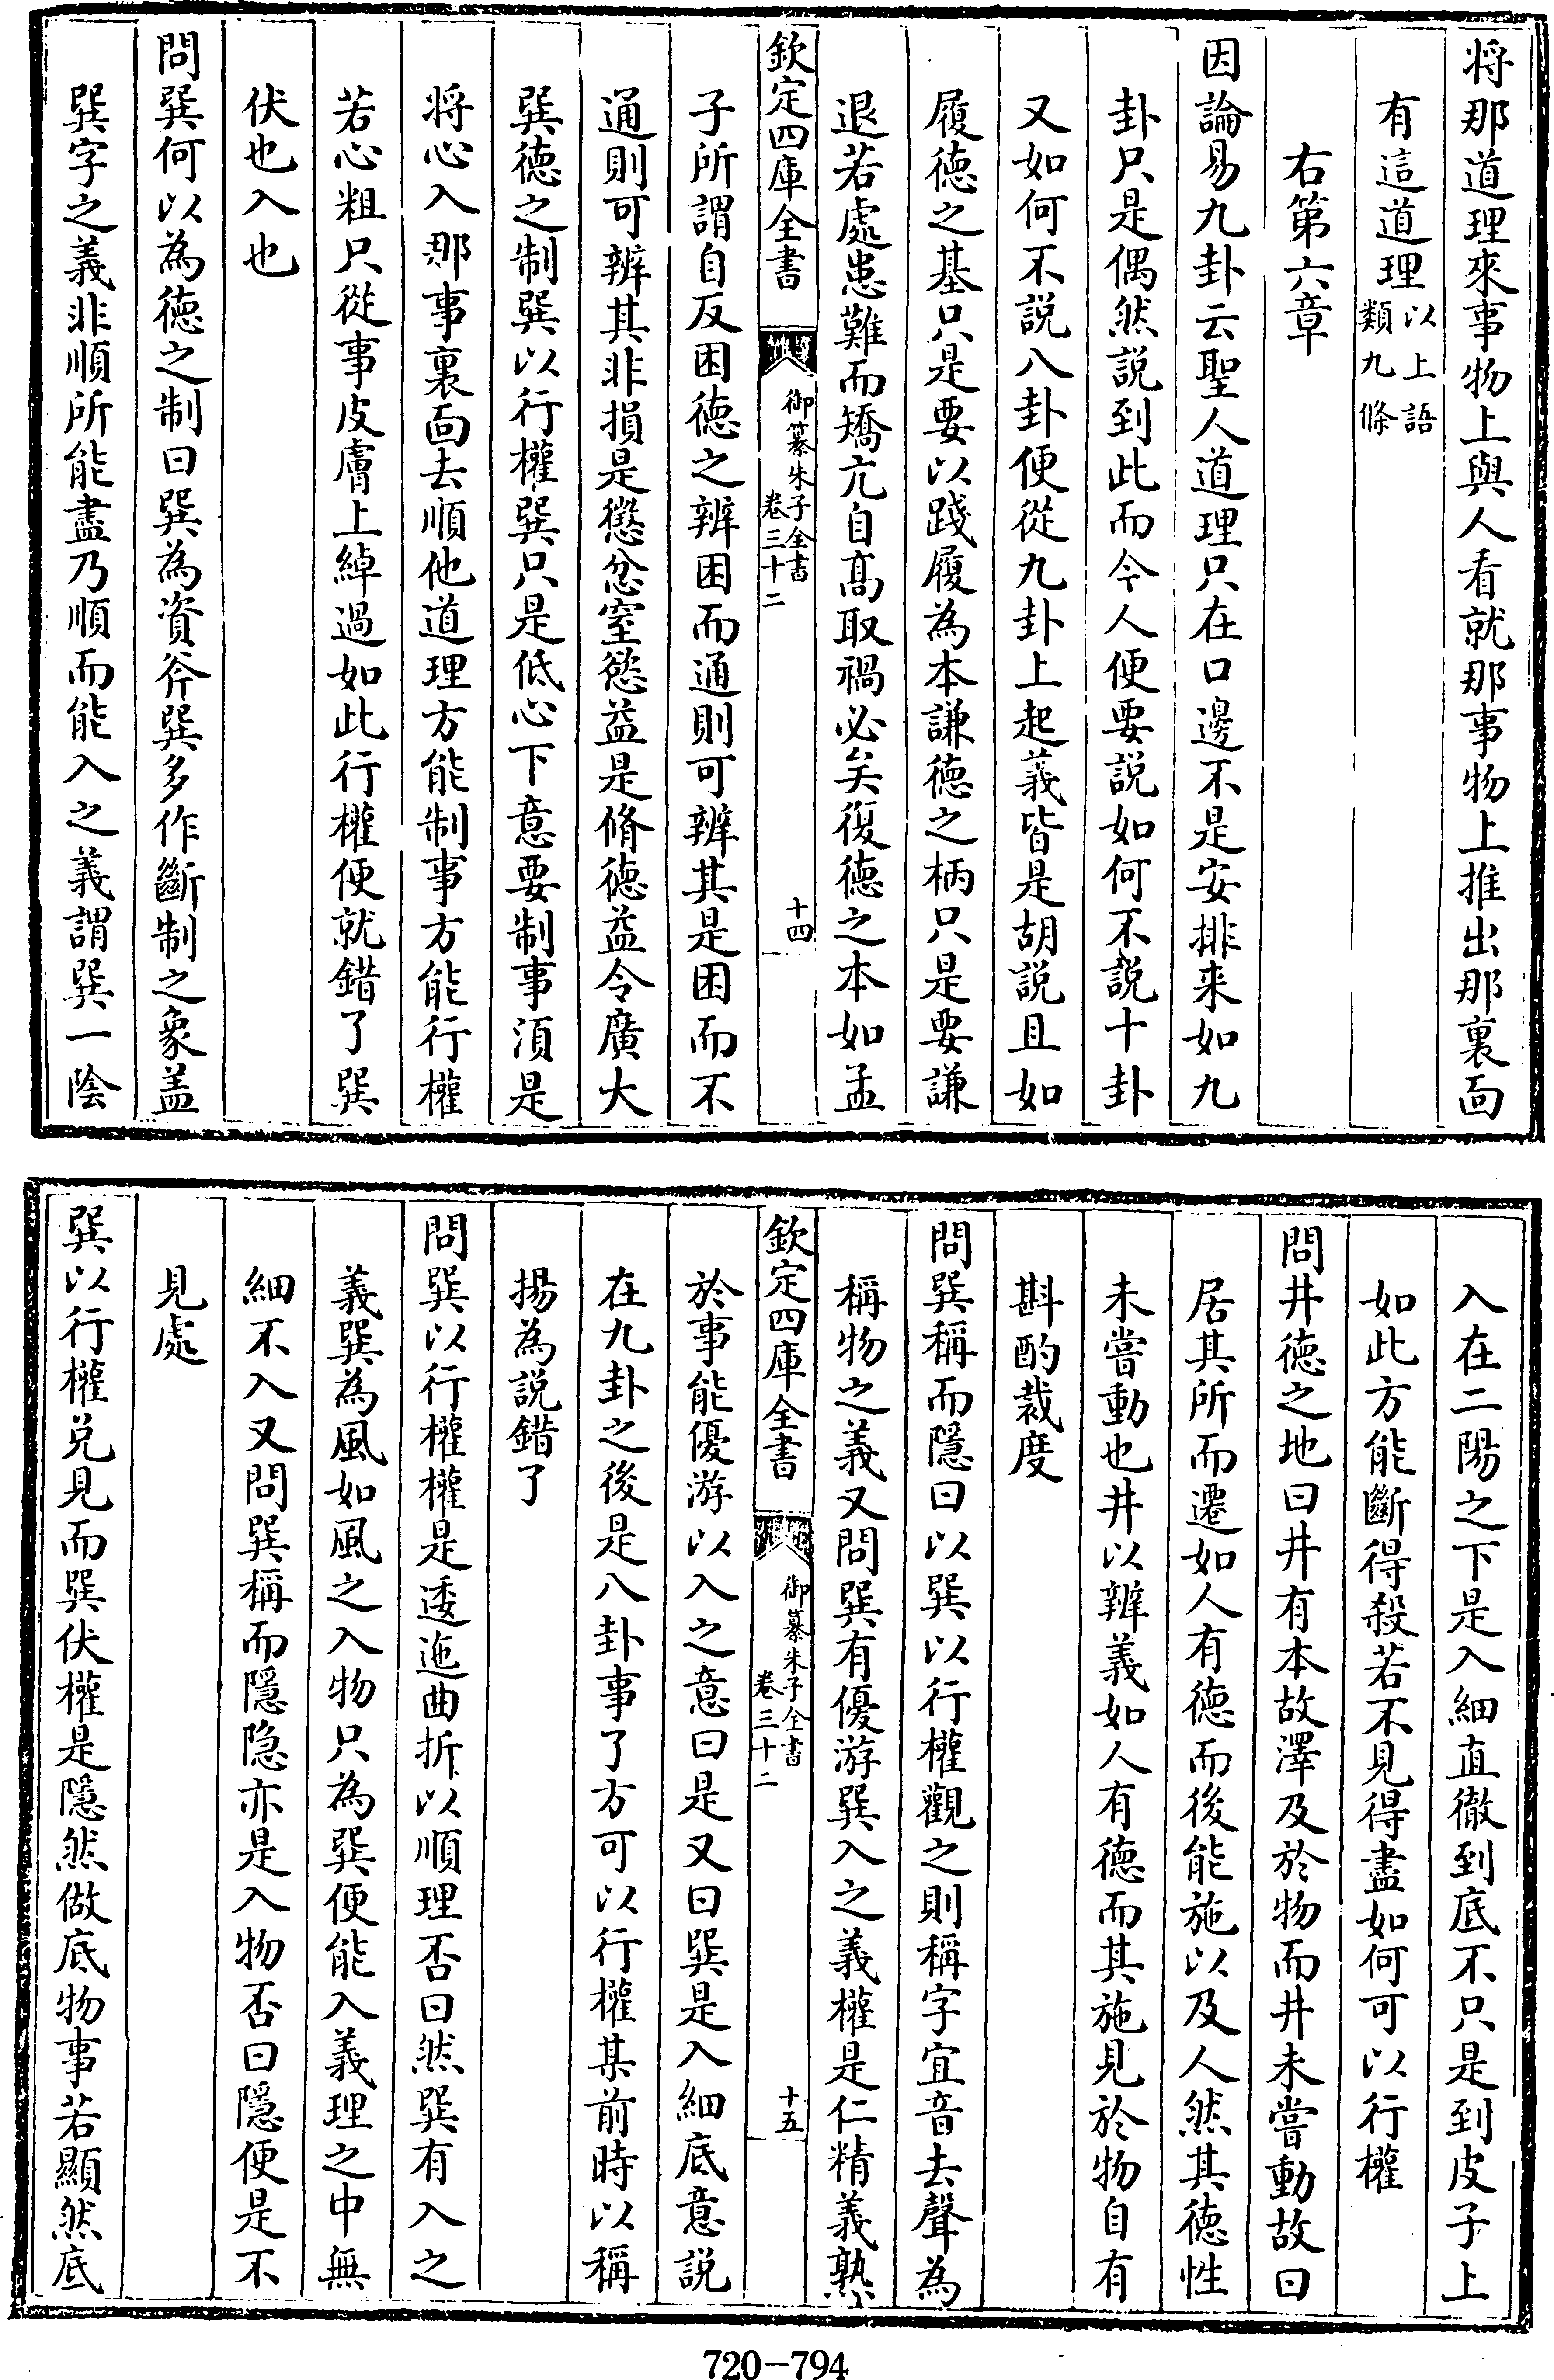 將那道理來事物上與人看就那事物上推出那裏面
有這道理以上語類九條
右第六章
因論易九卦云聖人道理只在口邊不是安排来如九
卦只是偶然説到此而今人便要説如何不説十卦
又如何不説八卦便從九卦上起義皆是胡説且如
履徳之基只是要以踐履為本謙徳之柄只是要謙
退若處患難而矯亢自髙取禍必矣復徳之本如孟
欽定四庫全書
御纂朱子全書
卷三十二
十四
子所謂自反困徳之辨困而通則可辨其是困而不
通則可辨其非損是懲忿窒慾益是脩徳益令廣大
巽德之制巽以行權巽只是低心下意要制事須是
將心入那事裏面去順他道理方能制事方能行權
若心粗只從事皮膚上綽過如此行權便就錯了巽
伏也入也
問巽何以為徳之制曰巽為資斧巽多作斷制之象盖
巽字之義非順所能盡乃順而能入之義謂巽一陰
入在二陽之下是入細直徹到底不只是到皮子上
如此方能斷得殺若不見得盡如何可以行權
問井徳之地曰井有本故澤及於物而井未嘗動故曰
居其所而遷如人有徳而後能施以及人然其徳性
未嘗動也井以辨義如人有德而其施見於物自有
斟酌裁度
問巽稱而隱曰以巽以行權觀之則稱字宜音去聲為
稱物之義又問巽有優游巽入之義權是仁精義熟
欽定四庫全書
御纂朱子全書
卷三十二
十五
於事能優游以入之意曰是又曰巽是入細底意説
在九卦之後是八卦事了方可以行權某前時以稱
揚為説錯了
問巽以行權權是逶迤曲折以順理否曰然巽有入之
義巽為風如風之入物只為巽便能入義理之中無
細不入又問巽稱而隱隐亦是入物否曰隱便是不
見處
巽以行權兑見而巽伏權是隱然做底物事若顯然底
720-794